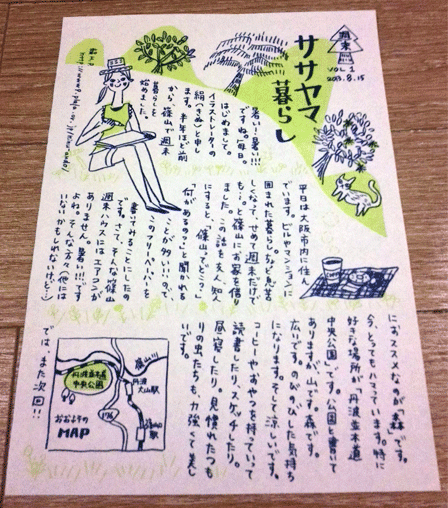 週末
ササヤマ
暮らし
vol.1
2013.8.15
暑い！暑い！！！
ですね。毎日。
はじめまして。
イラストレーターの
絹(きぬ)と申し
ます。半年ほど前
から、篠山で週末
暮らしを
始めました。
平日は大阪市内に住ん
でいます。ビルやマンションに
囲まれた暮らしなど息苦
しくなって、せめて週末だけで
も…と篠山にお家を借り
ました。この話を友人知人
にすると、「篠山ってどこ？」
「何があるの？」と聞かれる
ことが多いので、
このフリーペーパーを
書いてみることにしたの
です。さて、そんな篠山
週末ハウスにはエアコンが
ありません。暑い！！！です
よね。そんな方々(他には
いないかもしれないけど…)
におススメなのが「森」です。
今、とってもハマっています。特に
好きな場所が「丹波並木道
中央公園」です。公園と書いて
ありますが、山です。森です。
広いです。のびのびした気持ち
になります。そして涼しいです。
コーヒーやおやつを持っていって
読書したり、スケッチしたり。
昼寝したり。見慣れたつも
りの虫たちも、力強くて美し
いです。
では、また次回！！
篠山川
丹波並木道
中央公園
丹波
大山駅
176
篠山口
駅
おおよその
MAP